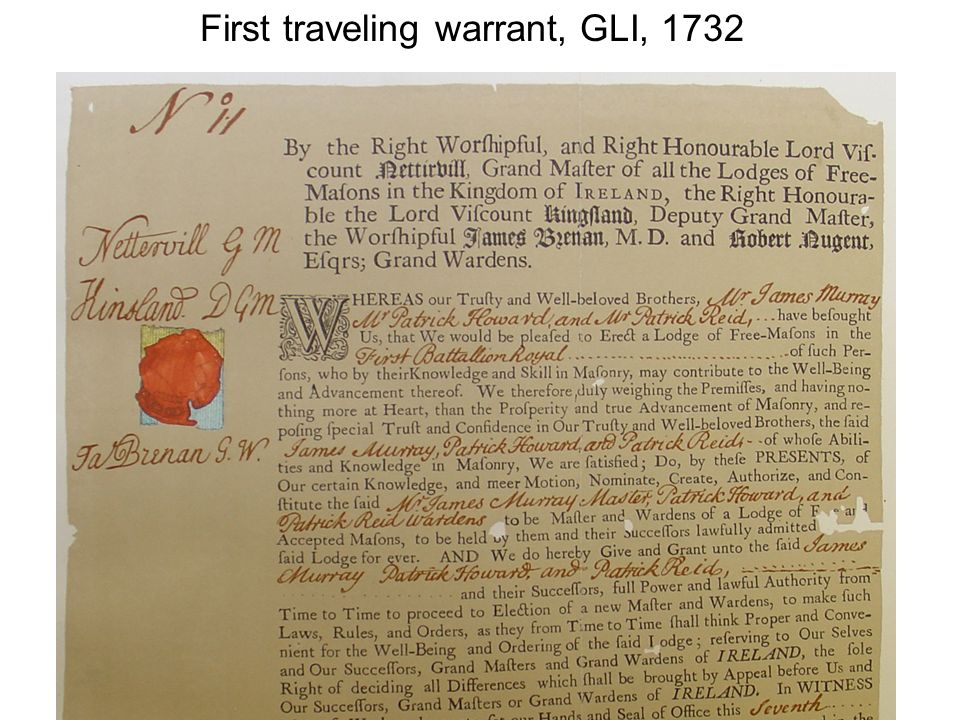 First traveling warrant, GLI, 1732
Nº 11
By the Right Worſhipful, and Right Honourable Lord Viſ-
count Nettirvill, Grand Maſter of all the Lodges of Free-
Maſons in the Kingdom of IRELAND, the Right Honoura-
ble the Lord Viſcount Kingſland, Deputy Grand Maſter,
the Worſhipful James Brenan, M. D. and Robert Nugent,
Eſqrs; Grand Wardens.
Nettervill G M
Kinsland D G M
Jaˢ Brenan G. W.
WHEREAS our Truſty and Well-beloved Brothers, Mr James Murray
Mr Patrick Howard, and Mr Patrick Reid, ... have beſought
Us, that We would be pleaſed to Erect a Lodge of Free-Maſons in the
First Battallion Royal ........................ of ſuch Per-
ſons, who by their Knowledge and Skill in Maſonry, may contribute to the Well-Being
and Advancement thereof. We therefore, duly weighing the Premiſſes, and having no-
thing more at Heart, than the Proſperity and true Advancement of Maſonry, and re-
poſing ſpecial Truſt and Confidence in Our Truſty and Well-beloved Brothers, the ſaid
James Murray, Patrick Howard, and Patrick Reid, - - of whoſe Abili-
ties and Knowledge in Maſonry, We are ſatisfied; Do, by theſe PRESENTS, of
Our certain Knowledge, and meer Motion, Nominate, Create, Authorize, and Con-
ſtitute the ſaid Mr James Murray Master, Patrick Howard, and
Patrick Reid Wardens to be Maſter and Wardens of a Lodge of Free and
Accepted Maſons, to be held by them and their Succeſſors lawfully admitted
ſaid Lodge for ever. AND We do hereby Give and Grant unto the ſaid James
Murray Patrick Howard, and Patrick Reid, ....................
and their Succeſſors, full Power and lawful Authority from
Time to Time to proceed to Election of a new Maſter and Wardens, to make ſuch
Laws, Rules, and Orders, as they from Time to Time ſhall think Proper and Conve-
nient for the Well-Being and Ordering of the ſaid Lodge; reſerving to Our Selves
and Our Succeſſors, Grand Maſters and Grand Wardens of IRELAND, the ſole
Right of deciding all Differences which ſhall be brought by Appeal before Us and
Our Succeſſors, Grand Maſters or Grand Wardens of IRELAND. In WITNESS
our Hands and Seal of Office this Seventh